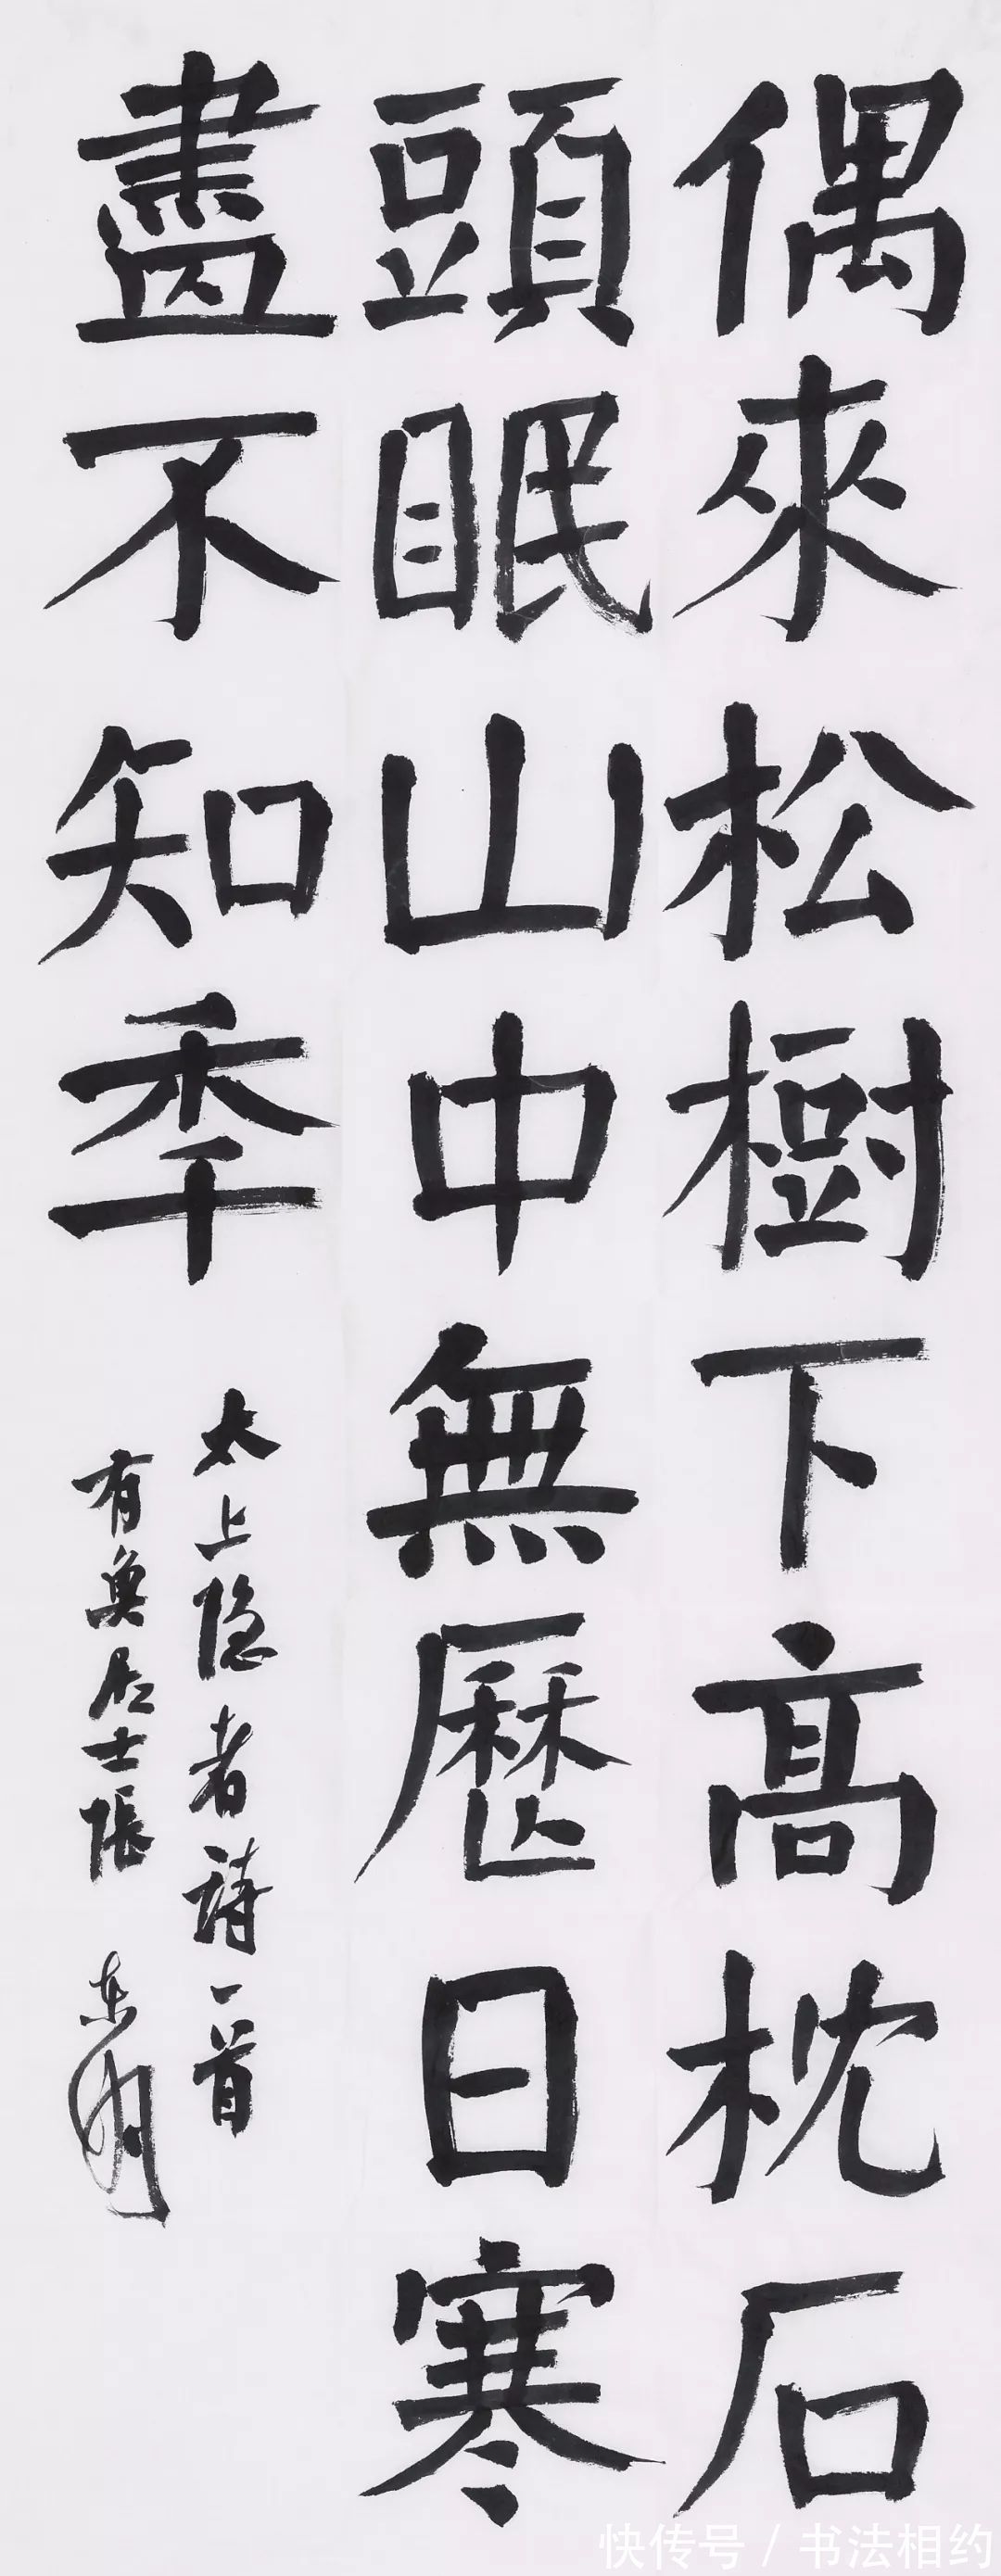 偶來松樹下高枕石
頭眠山中無歷日寒
盡不知秊
太上隐者詩一首
有奐居士張东明
快传号/书法相约